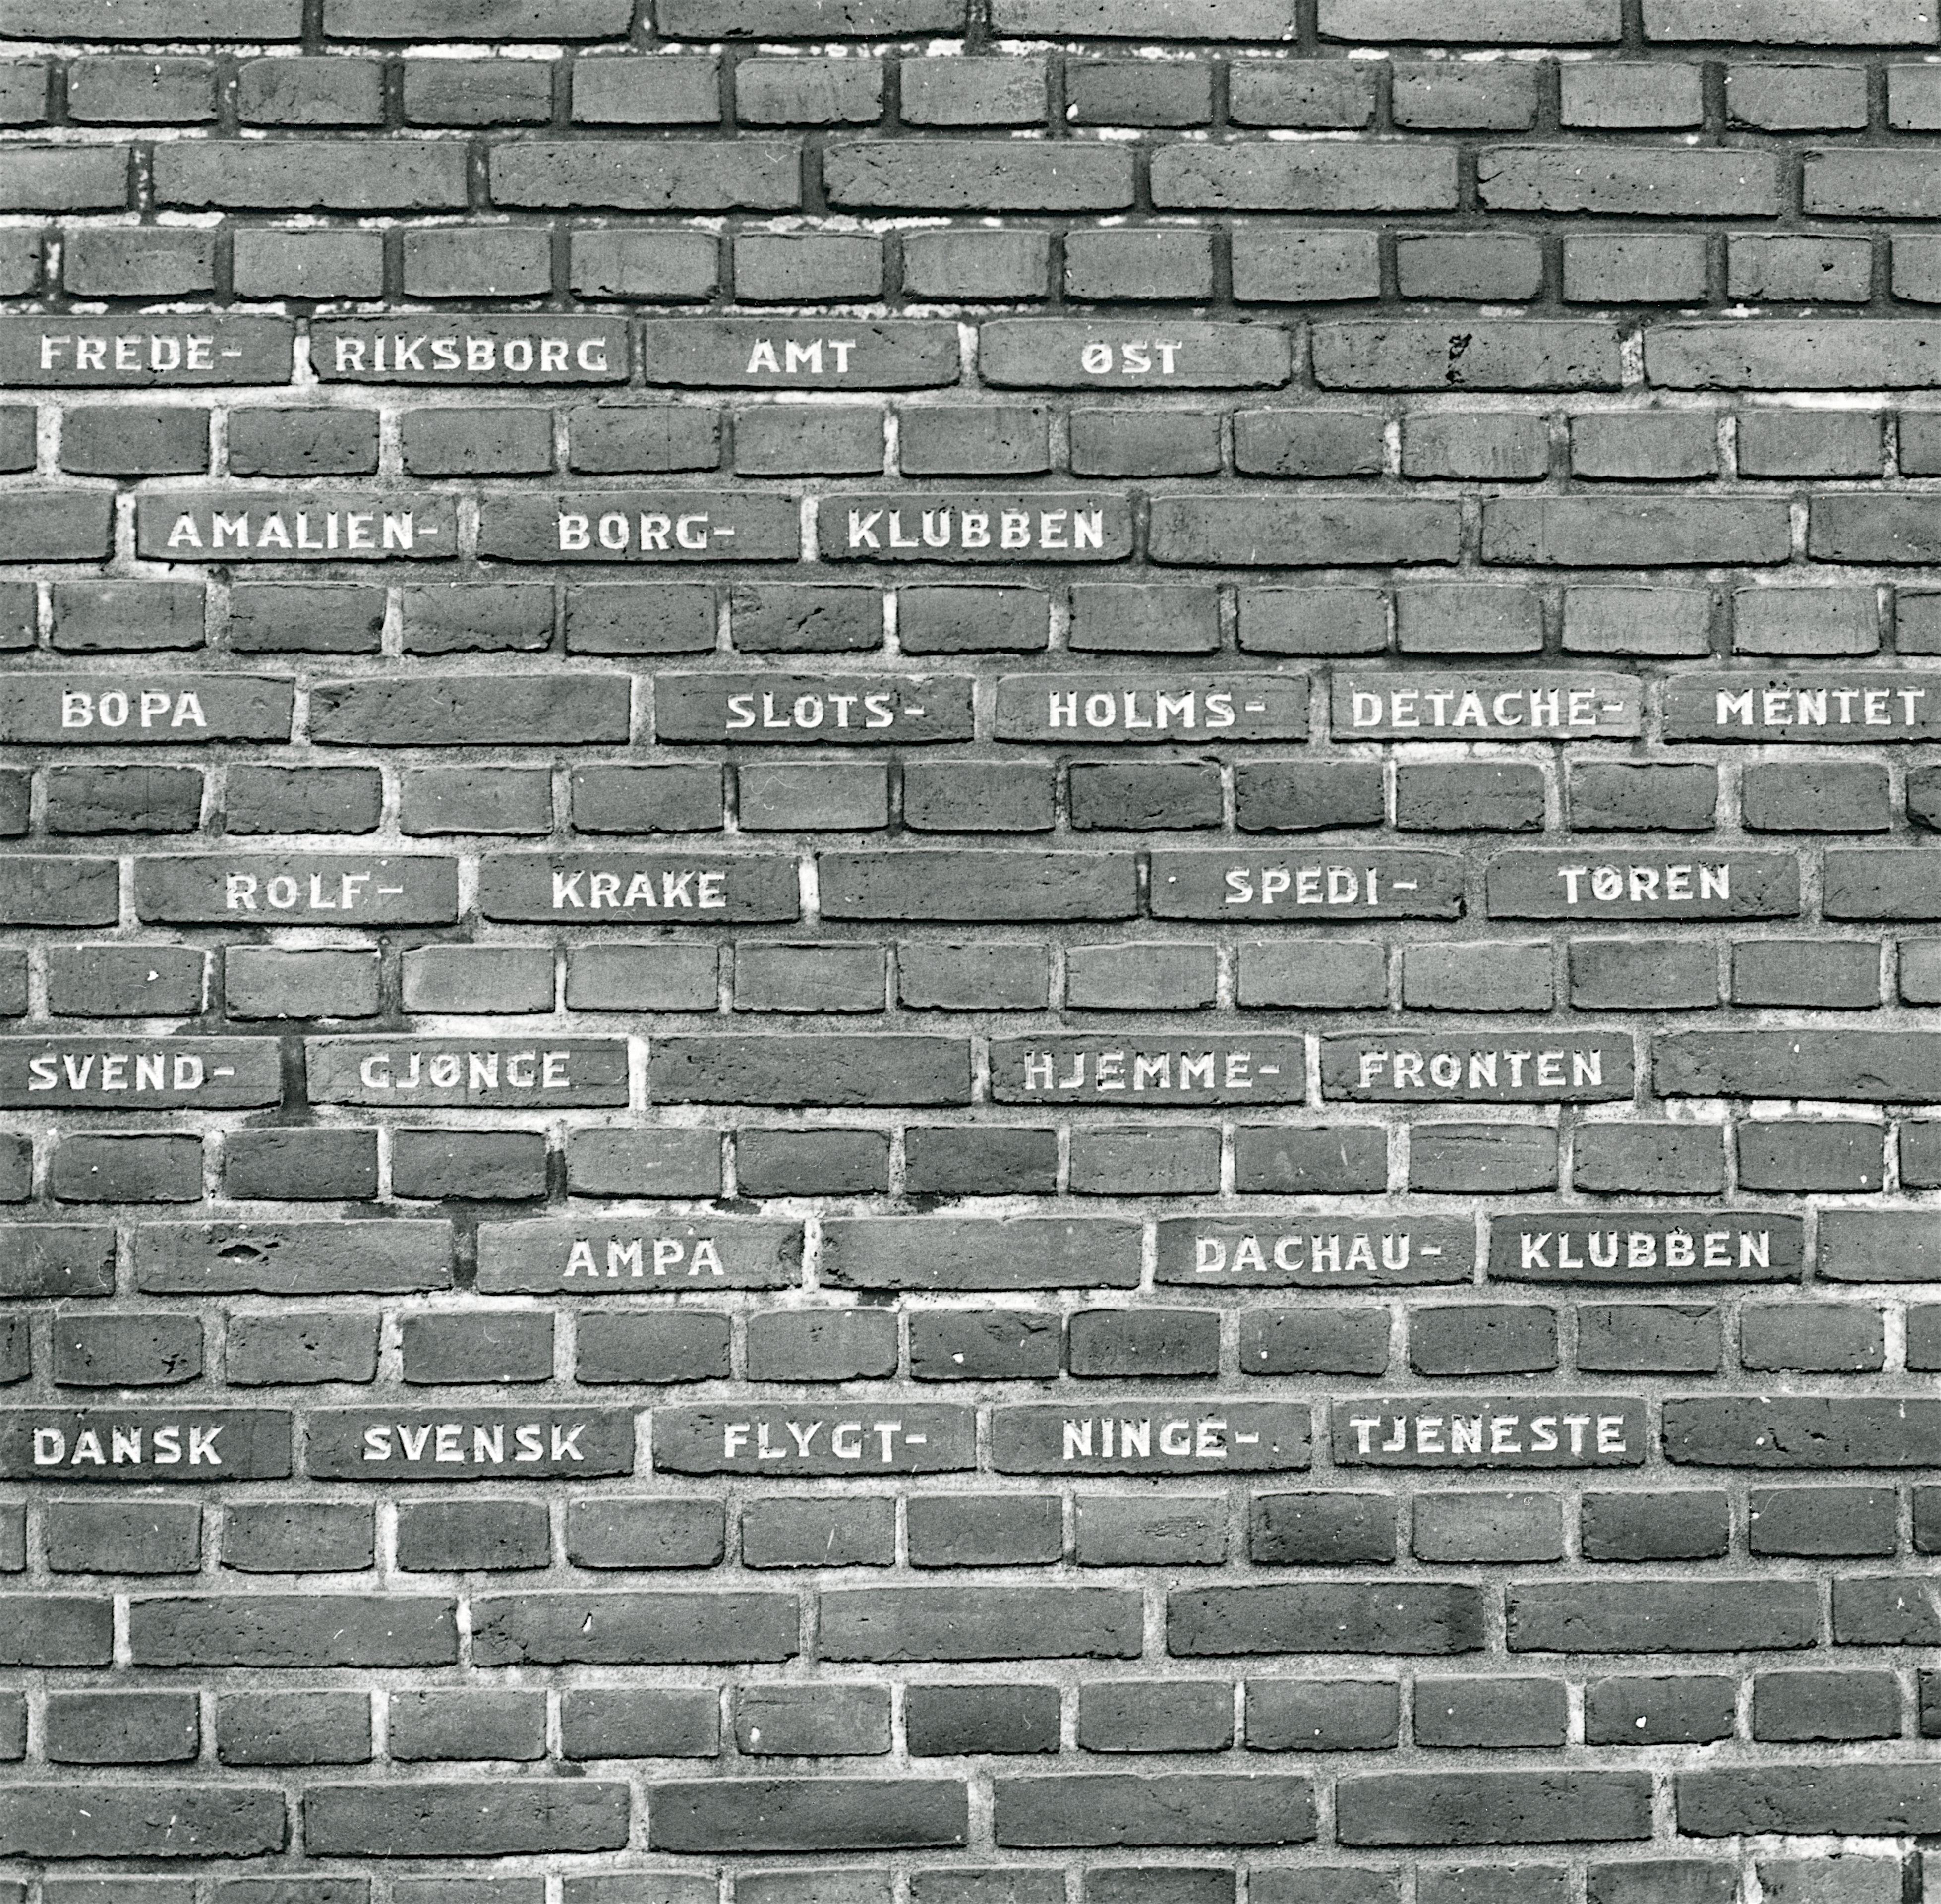 FREDE- RIKSBORG AMT ØST
AMALIEN- BORG- KLUBBEN
BOPA SLOTS- HOLMS- DETACHE- MENTET
ROLF- KRAKE SPEDI- TØREN
SVEND- GJØNGE HJEMME- FRONTEN
AMPA DACHAU- KLUBBEN
DANSK SVENSK FLYGT- NINGE- TJENESTE